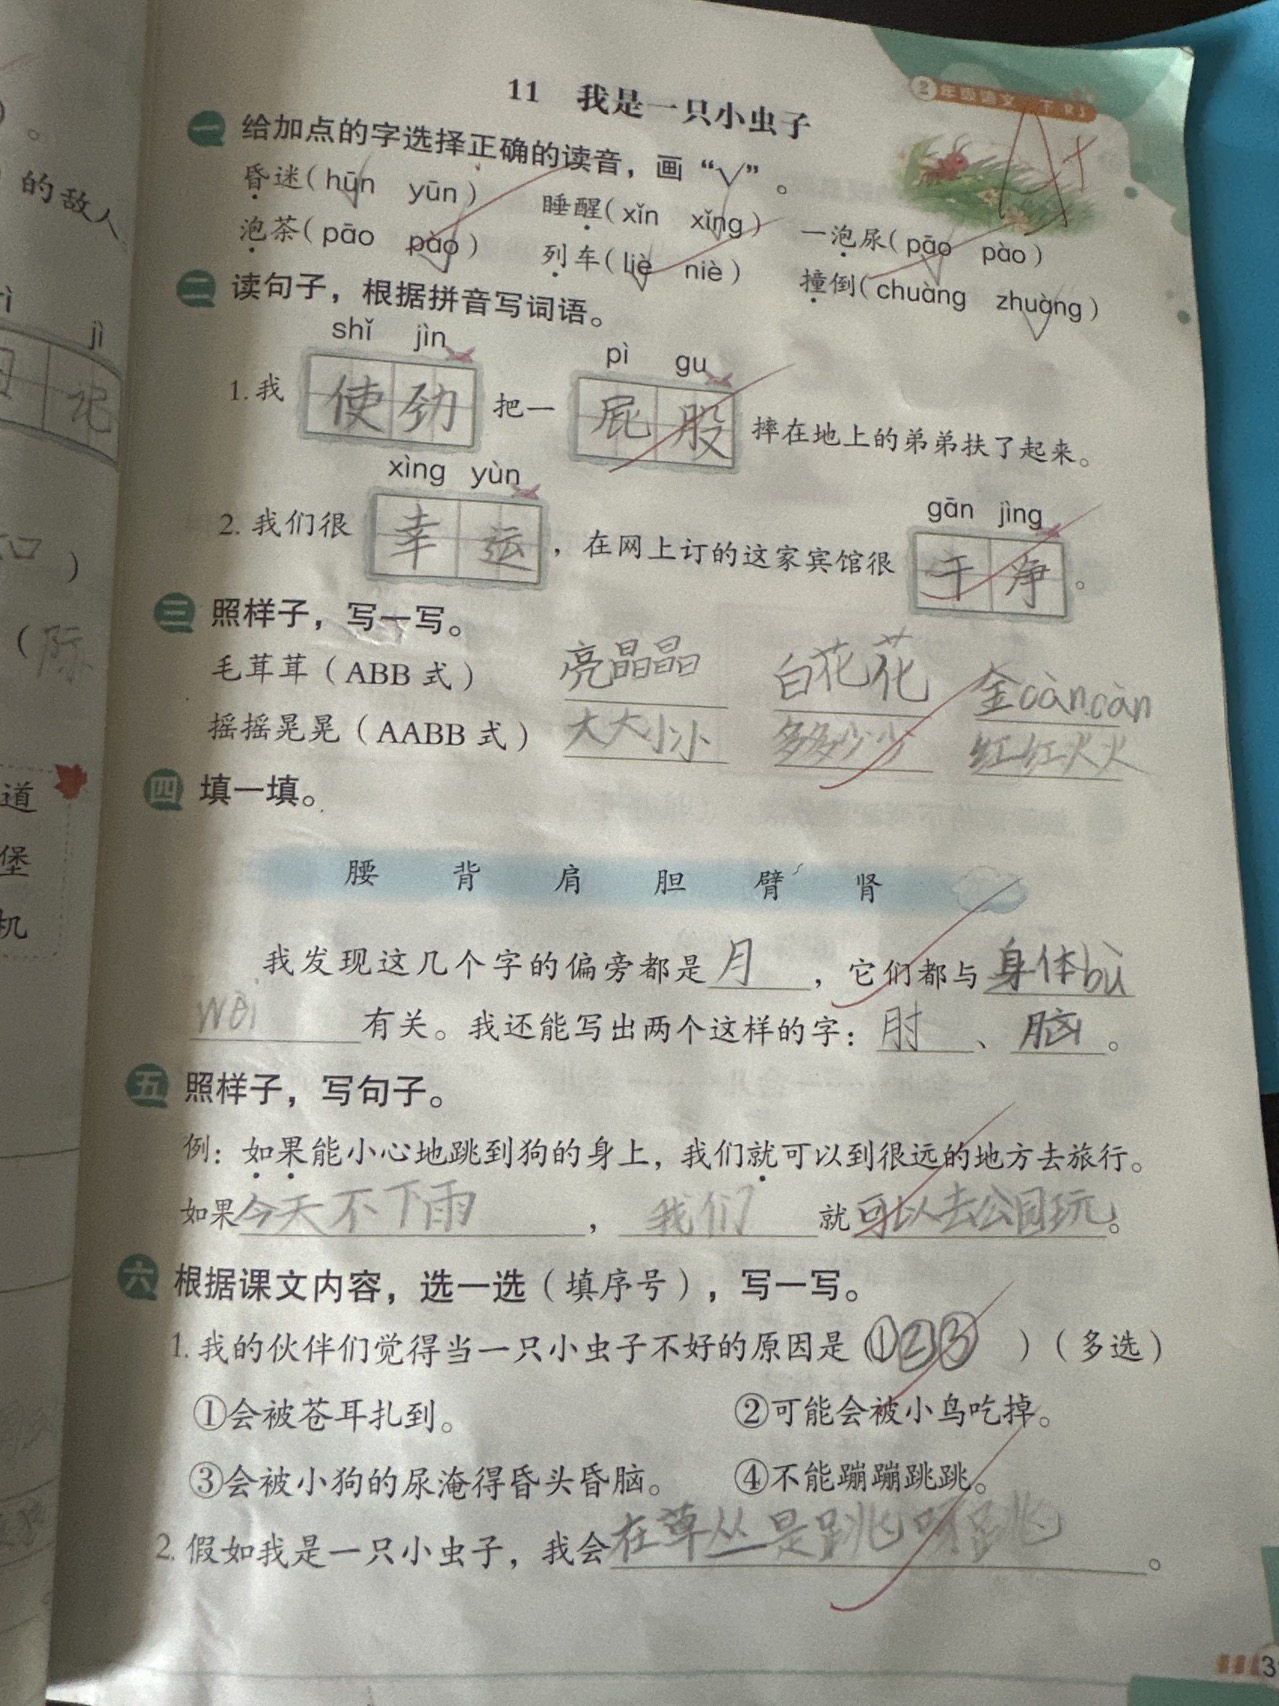 11 我是一只小虫子
2年级语文 下 RJ
A+
一 给加点的字选择正确的读音，画“√”。
昏迷(hūn yūn) 睡醒(xǐn xǐng) 一泡尿(pāo pào)
泡茶(pāo pào) 列车(liè niè) 撞倒(chuàng zhuàng)
二 读句子，根据拼音写词语。
shǐ jìn pì gu
1.我 使劲 把一 屁股 摔在地上的弟弟扶了起来。
xìng yùn gān jìng
2.我们很 幸运 ，在网上订的这家宾馆很 干净 。
三 照样子，写一写。
毛茸茸（ABB 式） 亮晶晶 白花花 金càncàn
摇摇晃晃（AABB 式） 大大小小 多多少少 红红火火
四 填一填。
腰 背 肩 胆 臂 肾
我发现这几个字的偏旁都是月，它们都与身体bù
wèi有关。我还能写出两个这样的字：肘、脑。
五 照样子，写句子。
例：如果能小心地跳到狗的身上，我们就可以到很远的地方去旅行。
如果今天不下雨，我们就可以去公园玩。
六 根据课文内容，选一选（填序号），写一写。
1.我的伙伴们觉得当一只小虫子不好的原因是（①②③）（多选）
①会被苍耳扎到。 ②可能会被小鸟吃掉。
③会被小狗的尿淹得昏头昏脑。 ④不能蹦蹦跳跳。
2.假如我是一只小虫子，我会在草丛里跳呀跳。
的敌人
jì
记
道
堡
机